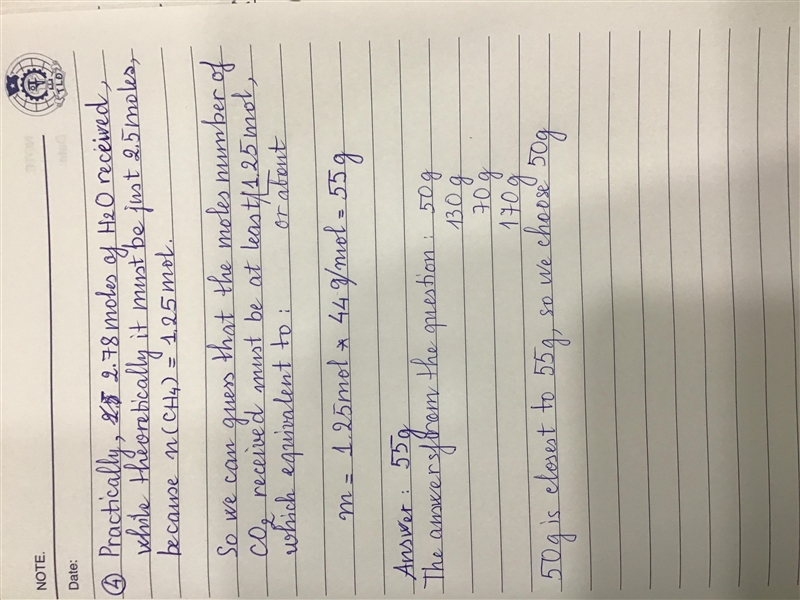 NOTE.
Date:
④ Practically, 2.78 moles of H2O received,
while theoretically it must be just 2.5 moles,
because n(CH4) = 1.25 mol.
So we can guess that the moles number of
CO2 received must be at least 1.25 mol,
which equivalent to: or about
m = 1.25 mol * 44 g/mol = 55 g
Answer: 55g
The answers from the question: 50g
130g
70g
170g
50g is closest to 55g, so we choose 50g